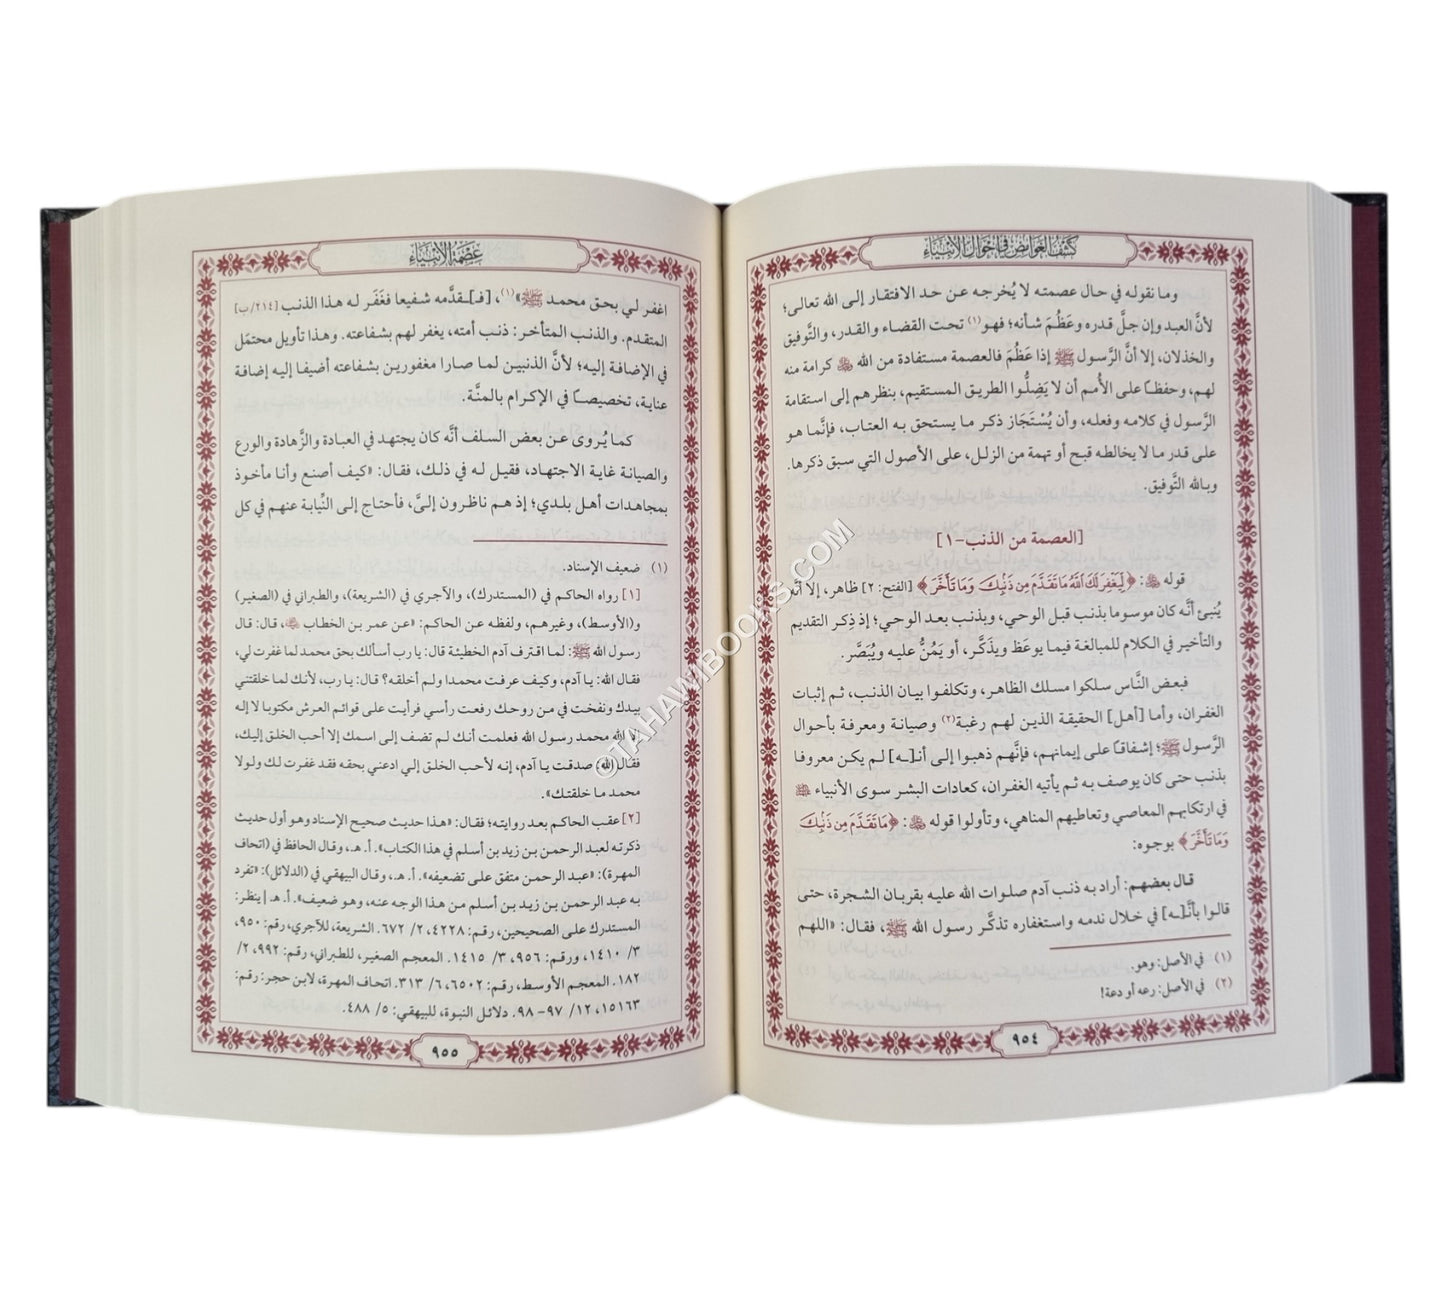 كشف الغوامض في أحوال الأنبياء
وما نقوله في حال عصمته لا يُخرجه عن حد الافتقار إلى الله تعالى؛
لأنَّ العبد وإن جلَّ قدره وعَظُمَ شأنه؛ فهو(١) تحت القضاء والقدر، والتَّوفيق
والخذلان، إلا أنَّ الرَّسول ﷺ إذا عَظُمَ فالعصمة مستفادة من الله ﷻ كرامة منه
لهم، وحفظًا على الأُمم أن لا يَضِلُّوا الطريق المستقيم، بنظرهم إلى استقامة
الرَّسول في كلامه وفعله، وأن يُسْتَجَاز ذكر ما يستحق به العتاب، فإنَّما هو
على قدر ما لا يخالطه قبح أو تهمة من الزلل، على الأصول التي سبق ذكرها.
وبالله التَّوفيق.
[العصمة من الذنب-١]
قوله ﷻ: ﴿لِّيَغْفِرَ لَكَ ٱللَّهُ مَا تَقَدَّمَ مِن ذَنۢبِكَ وَمَا تَأَخَّرَ﴾ [الفتح: ٢] ظاهر، إلا أنَّه
يُنبئ أنَّه كان موسوما بذنب قبل الوحي، وبذنب بعد الوحي؛ إذ ذِكر التقديم
والتأخير في الكلام للمبالغة فيما يوعَظ ويذَكَّر، أو يَمُنُّ عليه ويُبَصَّر.
فبعض النَّاس سلكوا مسلك الظاهر، وتكلفوا بيان الذنب، ثم إثبات
الغفران، وأما [أهل] الحقيقة الذين لهم رغبة(٢) وصيانة ومعرفة بأحوال
الرَّسول ﷺ؛ إشفاقًا على إيمانهم، فإنَّهم ذهبوا إلى أنـ[ـه] لم يكن معروفا
بذنب حتى كان يوصف به ثم يأتيه الغفران، كعادات البشر سوى الأنبياء ﷺ
في ارتكابهم المعاصي وتعاطيهم المناهي، وتأولوا قوله ﷻ: ﴿مَا تَقَدَّمَ مِن ذَنۢبِكَ
وَمَا تَأَخَّرَ﴾ بوجوه:
قال بعضهم: أراد به ذنب آدم صلوات الله عليه بقربان الشجرة، حتى
قالوا بأنَّـ[ـه] في خلال ندمه واستغفاره تذكَّر رسول الله ﷺ، فقال: «اللهم
(١) في الأصل: وهو.
(٢) في الأصل: رعه أو دعة!
٩٥٤
عصمة الأنبياء
اغفر لي بحق محمد ﷺ»(١)، [فـ]ـقدَّمه شفيعا فغَفَر له هذا الذنب [٢١٤/ب]
المتقدم. والذنب المتأخر: ذنب أمته، يغفر لهم بشفاعته. وهذا تأويل محتمَل
في الإضافة إليه؛ لأنَّ الذنبين لما صارا مغفورين بشفاعته أضيفا إليه إضافة
عناية، تخصيصًا في الإكرام بالمنَّة.
كما يُروى عن بعض السلف أنَّه كان يجتهد في العبادة والزَّهادة والورع
والصيانة غاية الاجتهاد، فقيل له في ذلك، فقال: «كيف أصنع وأنا مأخوذ
بمجاهدات أهل بلدي؛ إذ هم ناظرون إليَّ، فأحتاج إلى النِّيابة عنهم في كل
(١) ضعيف الإسناد.
[١] رواه الحاكم في (المستدرك)، والآجري في (الشريعة)، والطبراني في (الصغير)
و(الأوسط)، وغيرهم، ولفظه عن الحاكم: «عن عمر بن الخطاب ﵁، قال: قال
رسول الله ﷺ: لما اقترف آدم الخطيئة قال: يا رب أسألك بحق محمد لما غفرت لي،
فقال الله: يا آدم، وكيف عرفت محمدا ولم أخلقه؟ قال: يا رب، لأنك لما خلقتني
بيدك ونفخت في من روحك رفعت رأسي فرأيت على قوائم العرش مكتوبا لا إله
إلا الله محمد رسول الله فعلمت أنك لم تضف إلى اسمك إلا أحب الخلق إليك،
فقال الله: صدقت يا آدم، إنه لأحب الخلق إلي ادعني بحقه فقد غفرت لك ولولا
محمد ما خلقتك».
[٢] عقب الحاكم بعد روايته؛ فقال: «هذا حديث صحيح الإسناد وهو أول حديث
ذكرته لعبد الرحمن بن زيد بن أسلم في هذا الكتاب». أ.هـ، وقال الحافظ في (اتحاف
المهرة): «عبد الرحمن متفق على تضعيفه». أ.هـ، وقال البيهقي في (الدلائل): «تفرد
به عبد الرحمن بن زيد بن أسلم من هذا الوجه عنه، وهو ضعيف». أ.هـ | ينظر:
المستدرك على الصحيحين، رقم: ٤٢٢٨، ٢/ ٦٧٢. الشريعة، للآجري، رقم: ٩٥٠،
٣/ ١٤١٠، ورقم: ٩٥٦، ٣/ ١٤١٥. المعجم الصغير، للطبراني، رقم: ٩٩٢، ٢/
١٨٢. المعجم الأوسط، رقم: ٦٥٠٢، ٦/ ٣١٣. اتحاف المهرة، لابن حجر: رقم:
١٥١٦٣، ١٢/ ٩٧-٩٨. دلائل النبوة، للبيهقي: ٥/ ٤٨٨.
٩٥٥
©TAHAWIBOOKS.COM